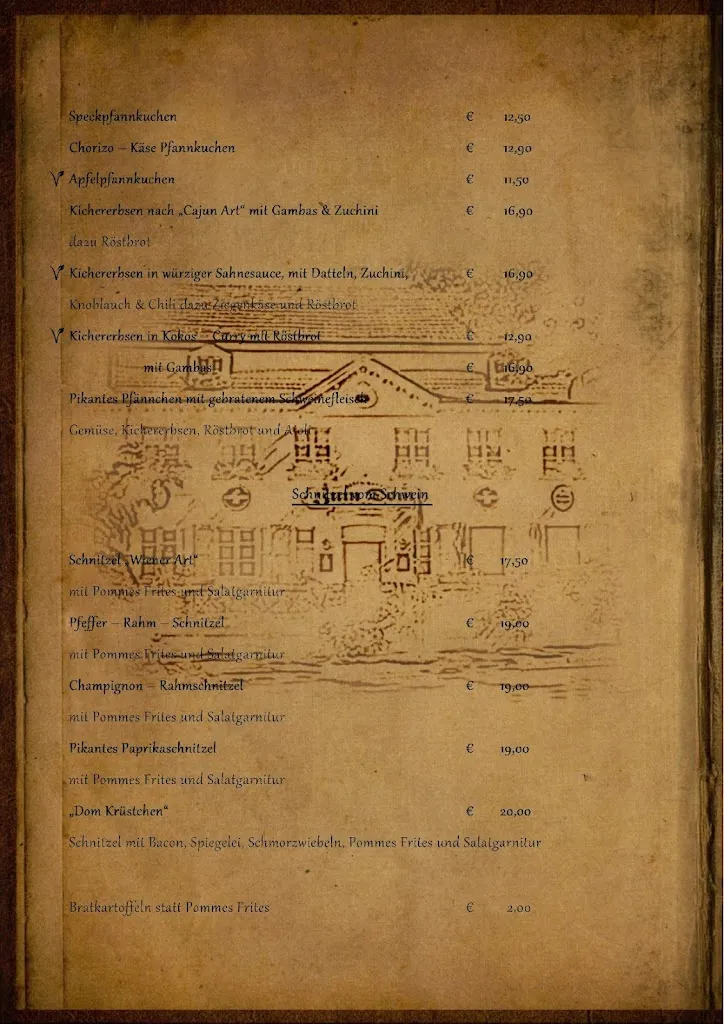 Speckpfannkuchen € 12,50
Chorizo – Käse Pfannkuchen € 12,90
V Apfelpfannkuchen € 11,50
Kichererbsen nach „Cajun Art“ mit Gambas & Zuchini € 16,90
dazu Röstbrot
V Kichererbsen in würziger Sahnesauce, mit Datteln, Zuchini, € 16,90
Knoblauch & Chili dazu Ziegenkäse und Röstbrot
V Kichererbsen in Kokos – Curry mit Röstbrot € 12,90
mit Gambas € 16,90
Pikantes Pfännchen mit gebratenem Schweinefleisch € 17,50
Gemüse, Kichererbsen, Röstbrot und Aioli
Schnitzel vom Schwein
Schnitzel „Wiener Art“ € 17,50
mit Pommes Frites und Salatgarnitur
Pfeffer – Rahm – Schnitzel € 19,00
mit Pommes Frites und Salatgarnitur
Champignon – Rahmschnitzel € 19,00
mit Pommes Frites und Salatgarnitur
Pikantes Paprikaschnitzel € 19,00
mit Pommes Frites und Salatgarnitur
„Dom Krüstchen“ € 20,00
Schnitzel mit Bacon, Spiegelei, Schmorzwiebeln, Pommes Frites und Salatgarnitur
Bratkartoffeln statt Pommes Frites € 2,00